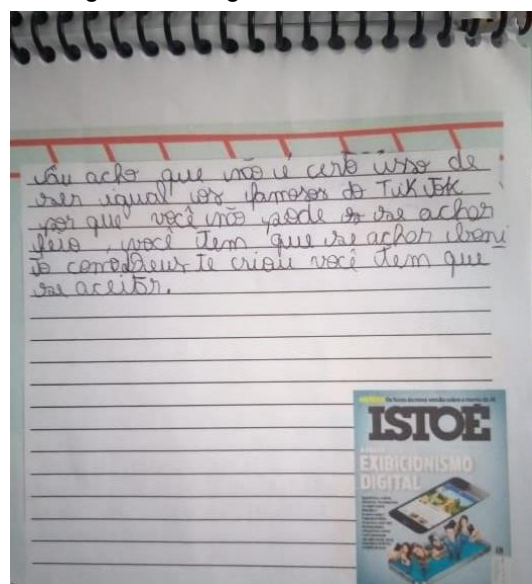 Eu acho que não é certo isso de
ser igual os famosos do TikTok
por que você não pode se achar
feio, você tem que se achar boni
to como Deus te criou você tem que
se aceitar.
ISTOÉ
EXIBICIONISMO
DIGITAL